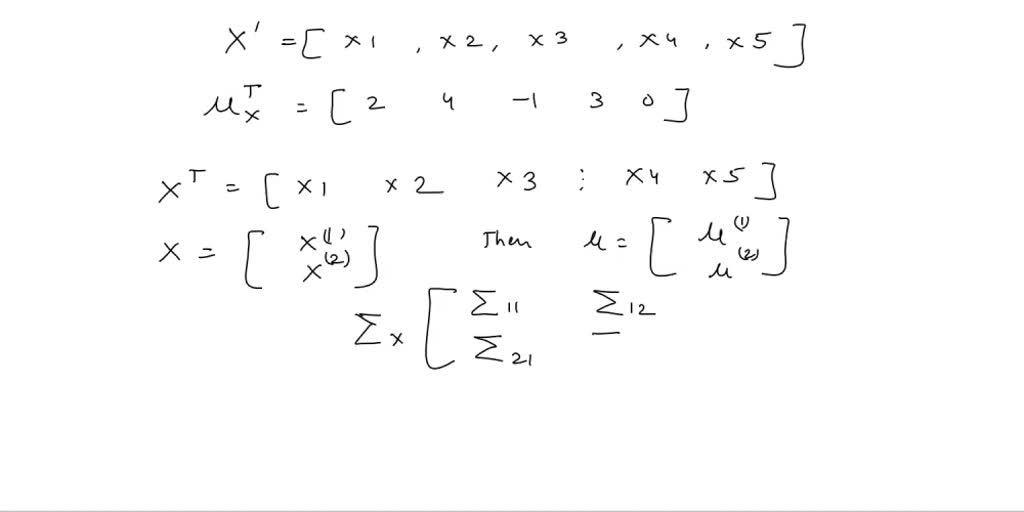 X' = [ x1 , x2, x3 , x4 , x5 ]
μ_X^T = [ 2 4 -1 3 0 ]
X^T = [ x1 x2 x3 ⋮ x4 x5 ]
X = [ X^(1) X^(2) ] Then μ = [ μ^(1) μ^(2) ]
Σ_X [ Σ11 Σ12
Σ21